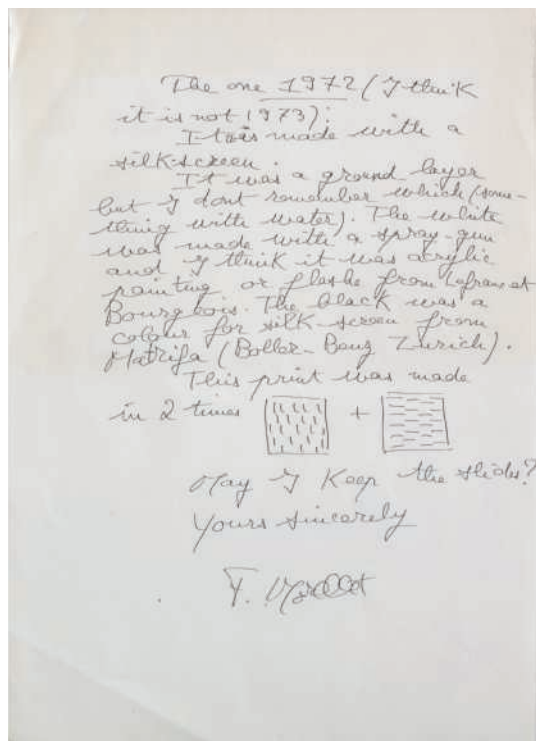 The one 1972 (I think
it is not 1973):
It is made with a
silk-screen.
It was a ground layer
but I dont remember which (some-
thing with water). The white
was made with a spray-gun
and I think it was acrylic
painting or flashe from Lefranc et
Bourgeois. The black was a
colour for silk-screen from
(Boller-Benz Zurich).
This print was made
in 2 times +
May I Keep the slides?
Yours sincerely
F. Morellet